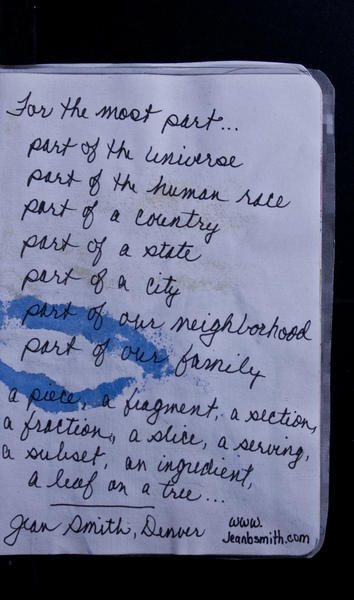 For the most part...
part of the universe
part of the human race
part of a country
part of a state
part of a city
part of our neighborhood
part of our family
a piece, a fragment, a section,
a fraction, a slice, a serving,
a subset, an ingredient,
a leaf on a tree...
Jean Smith, Denver
www.
jeanbsmith.com